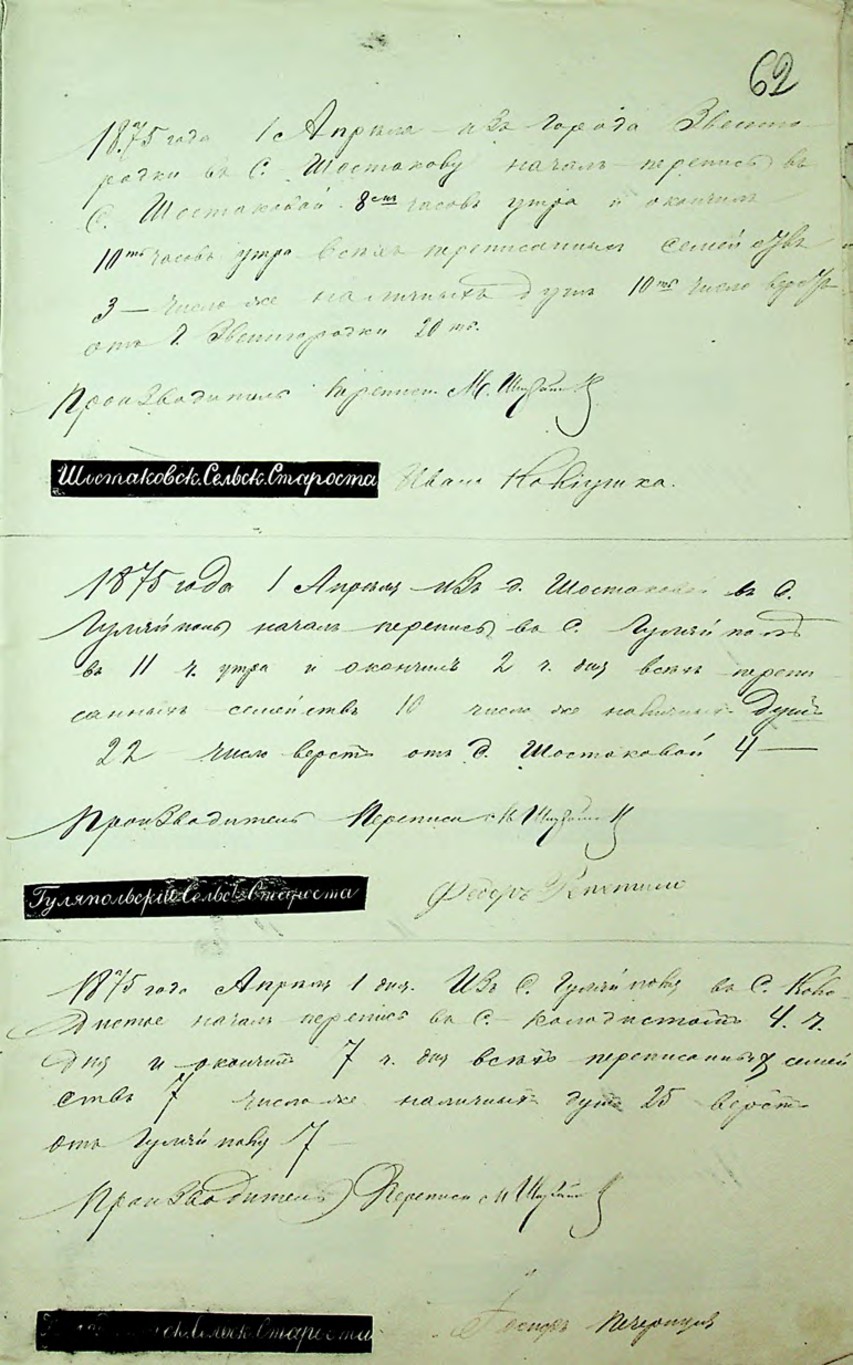 62
1875 года 1 Апреля изъ города Звениго-
родки въ С. Шостакову началъ перепись въ
С. Шостаковой 8 ем часовъ утра и окончилъ
10 тъ часовъ утра всѣхъ переписанныхъ семействъ
3 — число же наличныхъ душъ 10 тъ число верстъ
отъ Г. Звенигородки 20 тъ.
Производитель Переписи М.
Шостаковск. Сельск. Староста Иванъ
1875 года 1 Апреля изъ д. Шостаковой въ С.
Гуляйполь началъ перепись въ С. Гуляйполѣ
въ 11 ч. утра и окончилъ 2 ч. дня всѣхъ перепи
санныхъ семействъ 10 число же наличныхъ душъ
22 число верстъ отъ д. Шостаковой 4 —
Производитель Переписи М
Гуляпольскій Сельск. Староста Федоръ
1875 года Апреля 1 дня. Изъ С. Гуляйполя въ С. Коло-
дистое началъ перепись въ С. Колодистомъ 4. ч.
дня и окончилъ 7 ч. дня всѣхъ переписанныхъ семей
ствъ 7 число же наличныхъ душъ 25 верстъ
отъ Гуляйполя 7 —
Производитель Переписи М
Сельск. Староста Іосифъ